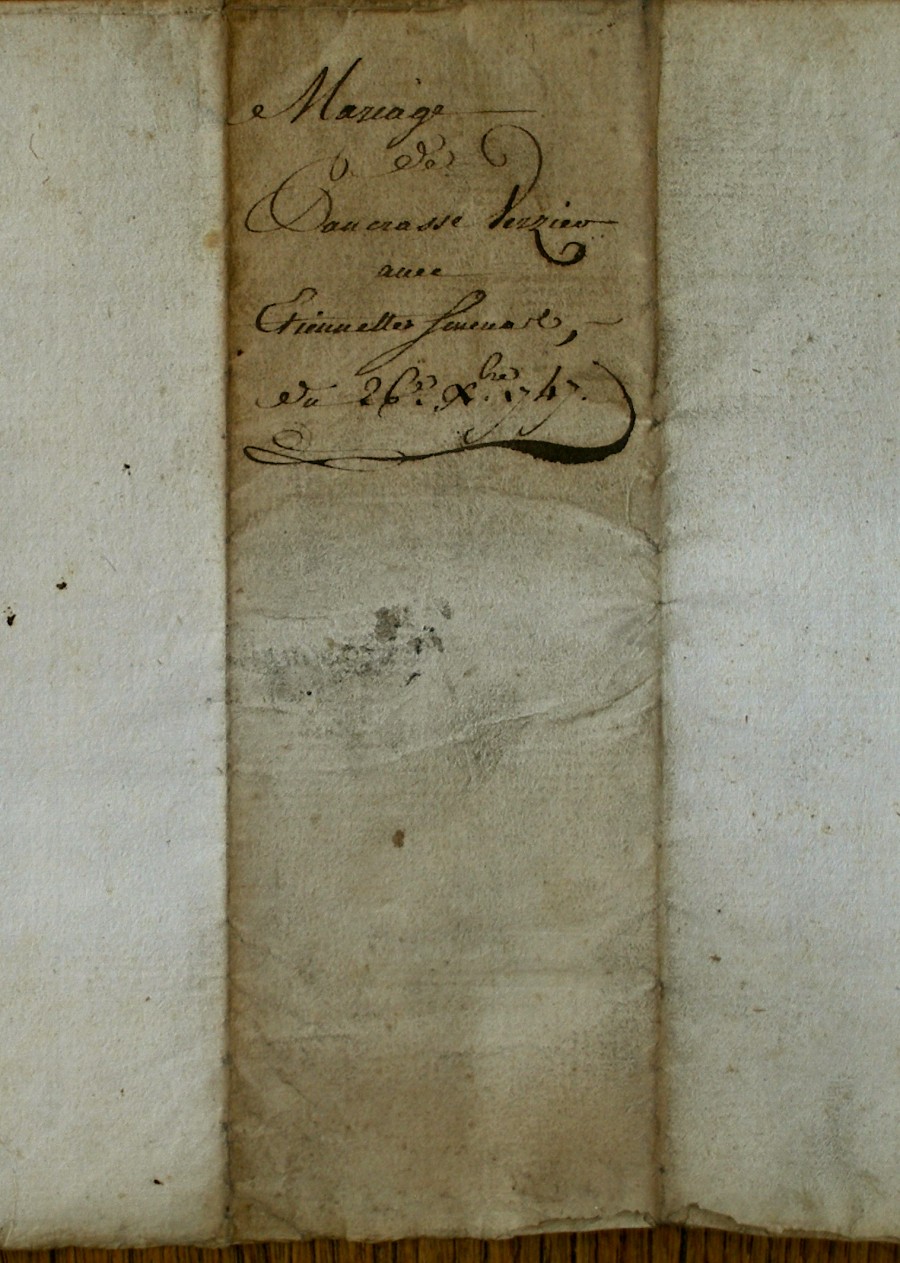 Mariage
de
Pancrasse Verzier
avec
Etiennette
du 26e. Xbre. 1747.